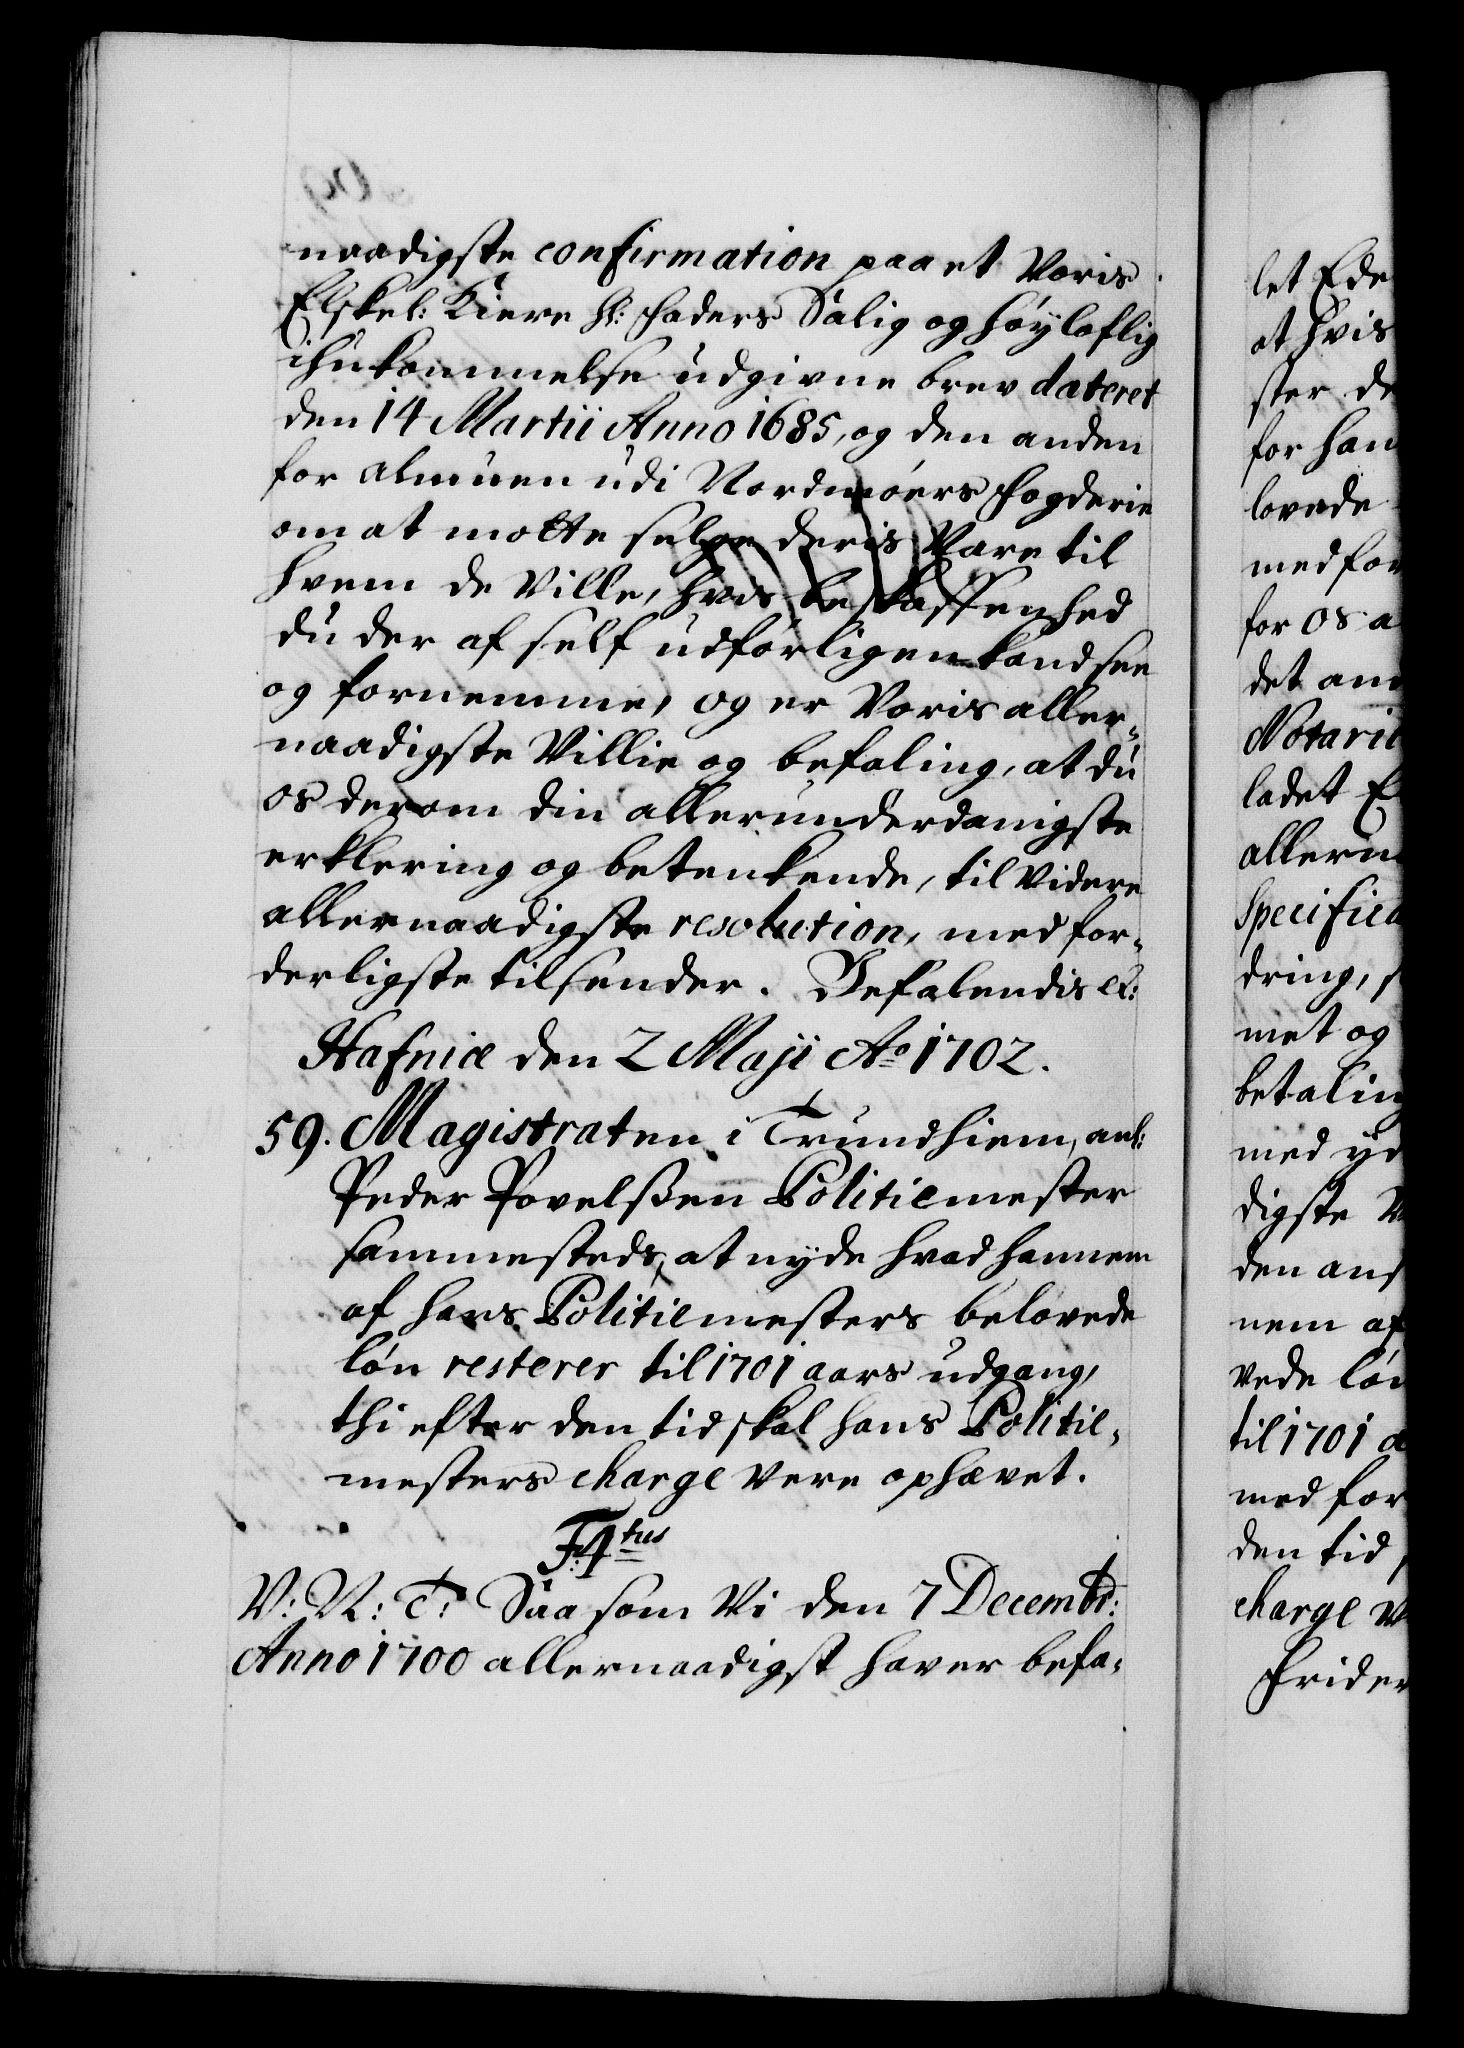 naadigste confirmation paa et Voris
Elskel: Kiere Hr: Faders Salig og høyloflig
ihukommelse udgivne brev dateret
den 14 Martii Anno 1685, og den anden
for almuen udi Nordmøers Fogderie
om at motte selge deris Vare til
hvem de Ville, hvis beskaffenhed
du der af self udførligen kand see
og fornemme, og er Voris aller-
naadigste Villie og befaling, at du
os derom din allerunderdanigste
erklering og betenkende, til videre
allernaadigste resolution, med for-
derligste tilsender. Befalendis etc:
Hafniæ den 2 Maji Ao 1702.
59. Magistraten i Trundhiem, anl:
Peder Povelssen Politiemester
sammesteds, at nyde hvad hannem
af hans Politiemesters belovede
løn resterer til 1701 aars udgang,
thi efter den tid skal hans Politie-
mesters charge vere ophævet.
F: 4tus
V: N: T: Saa som Vi den 7 Decembr:
Anno 1700 allernaadigst haver befa-
let Ede
at hvis
ster de
for han
lovede
med for
for os a
det an
Notarii
ladet E
allerun
Specifica
dring, s
met og
betaling
med yd
digste V
den ans
nem af
vede løn
til 1701 a
med for
den tid
charge v
Frider